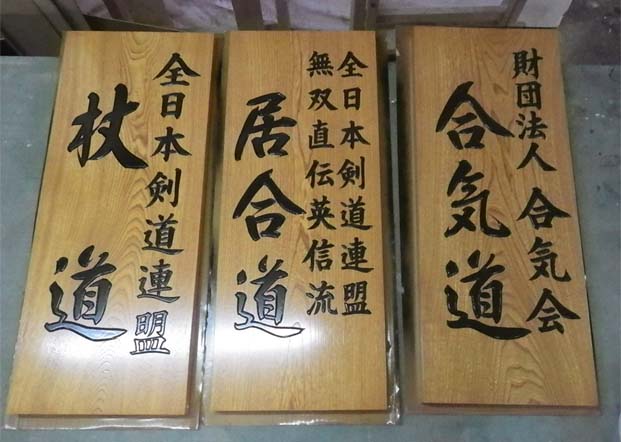 全日本剣道連盟
杖道
全日本剣道連盟
無双直伝英信流
居合道
財団法人 合気会
合気道